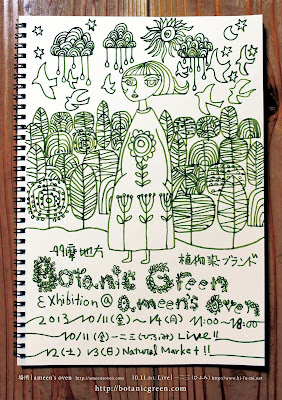 多摩地方 植物染ブランド
Botanic Green
Exhibition @ ameen's oven
2013 10/11(金)〜14(月) 11:00-18:00
10/11(金) 一二三(ひふみ) Live!!
12(土) 13(日) Natural Market!!
場所 | ameen's oven http://ameensoven.com 10.11.fri. Live | 一二三(ひふみ) http://www.hi-fu-mi.net
http://botanicgreen.com